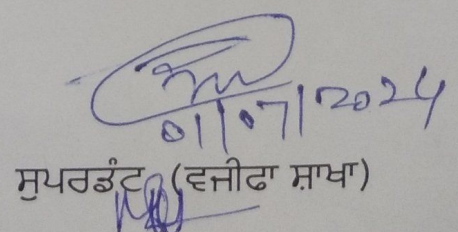 01/07/2024
ਸੁਪਰਡੰਟ (ਵਜੀਫਾ ਸ਼ਾਖਾ)